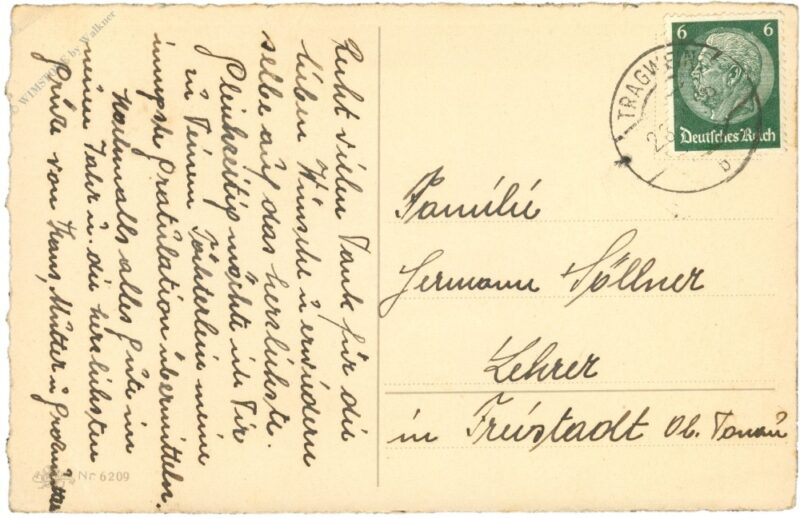 Recht vielen Dank für die
lieben Wünsche u. erwidern
selbe auf das herzlichste.
Gleichzeitig möchte ich Dir
zu Deinem Töchterlein meine
innigste Gratulation übermitteln.
Nochmalls alles gute im
neuen Jahr u. die herzlichsten
Grüße von Hans, Mutter u. Großmutter
Familie
Hermann Söllner
Lehrer
in Freistadt Ob. Donau
6 6
Deutsches Reich
TRAGWEIN
b
Nr 6209
© WIMSTOCK by Walkner